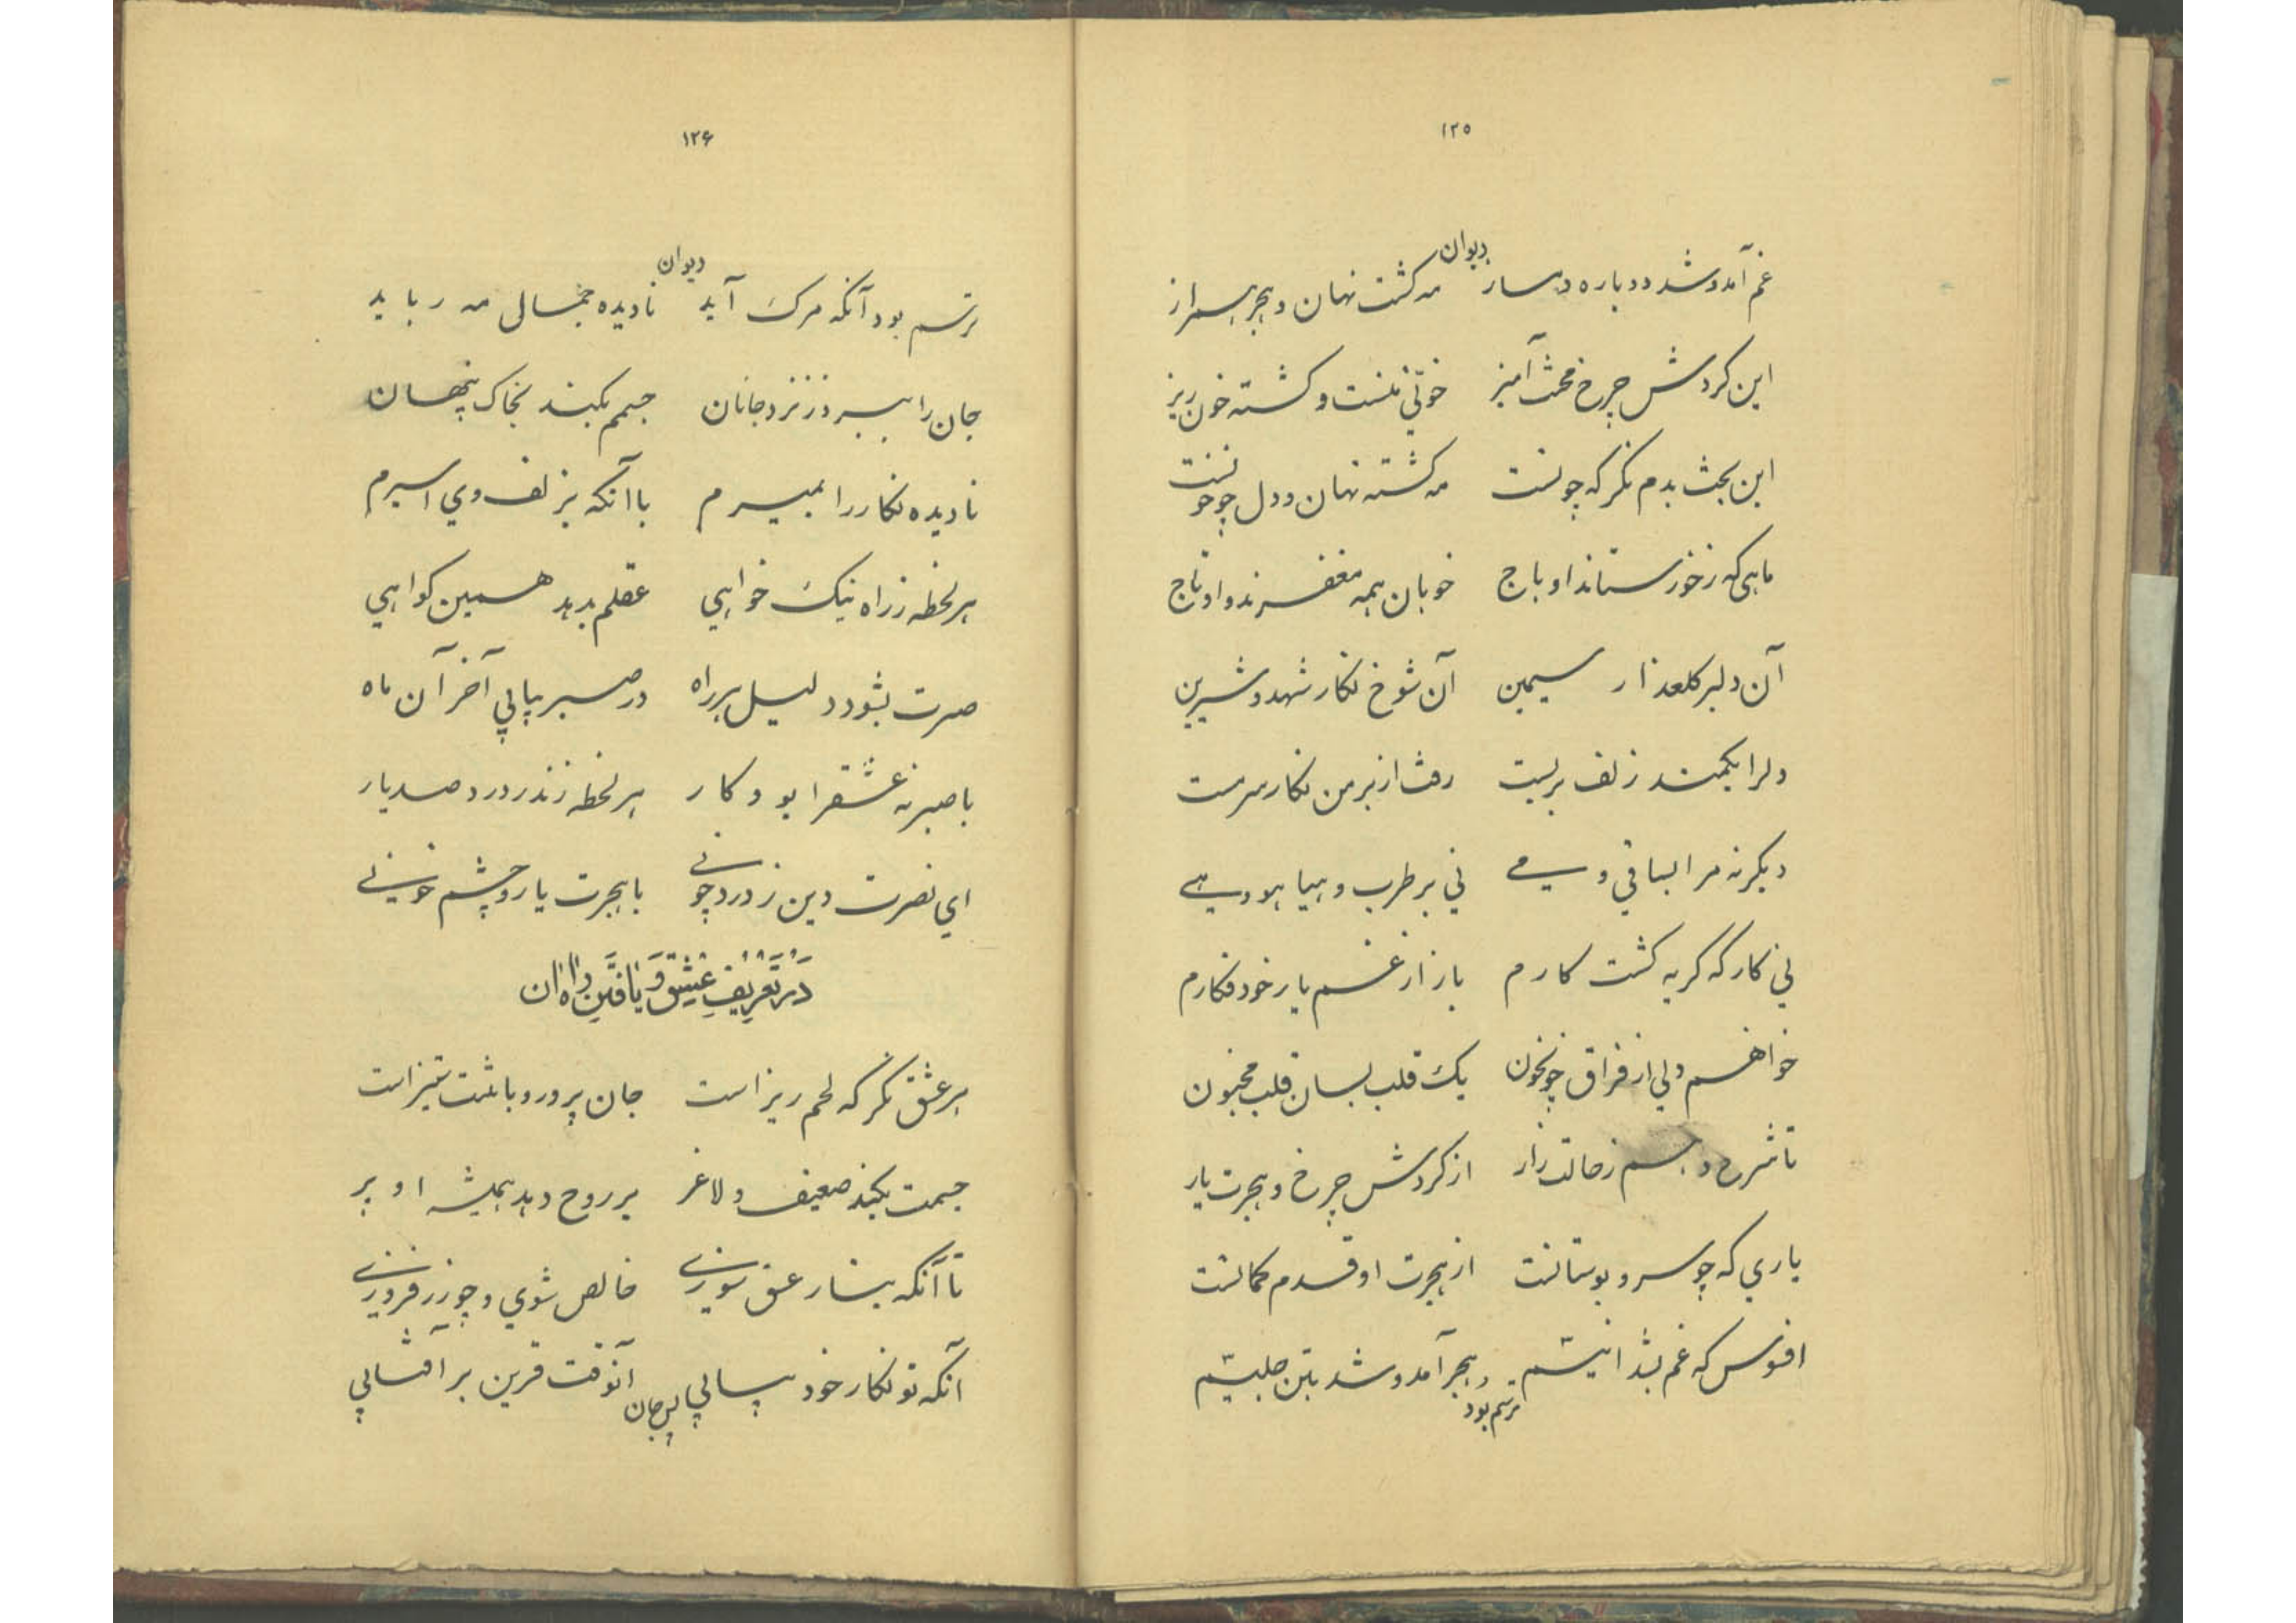 ۱۲۵
دیوان
غم آمد و شد دوباره دمساز مه گشت نهان و هجر همراز
این کردش چرخ محنت آمیز خونی منست و کشته خون ریز
این بخت بدم نکر که چونست مه کشته نهان و دل چو خونست
ماهی که ز خور ستاند او باج خوبان همه مغفرند و او تاج
آن دلبر کلعذار سیمین آن شوخ نکار شهد و شیرین
دلرا بکمند زلف بربست رفت از بر من نکار سرمست
دیکر نه مرا بساقی و می نی بر طرب و هیاهو و هی
نی کار که کریه کشت کارم باز از غم یار خود فکارم
خواهم دلی از فراق چونخون یک قلب بسان قلب مجنون
تا شرح دهم ز حالت زار از کردش چرخ و هجرت یار
یاری که چو سرو بوستانست از هجرت او قدم کمانست
افسوس که غم بشد انیسم هجر آمد و شد بتن جلیسم
ترسم بود
۱۲۶
دیوان
ترسم بود آنکه مرک آید نادیده جمال مه رباید
جان را ببرد ز نزد جانان جسمم بکند بخاک پنهان
نادیده نکار را بمیرم با آنکه بزلف وی اسیرم
هر لحظه ز راه نیک خواهی عقلم بدهد همین کواهی
صبرت بشود دلیل بر راه در صبر بیابی آخر آن ماه
با صبر نه عشقرا بود کار هر لحظه زند ز درد صد یار
ای نصرت دین ز درد چونی با هجرت یار و چشم خونی
در تعریف عشق و یافتن راه ان
بر عشق نکر که لحم ریز است جان پرور و با تنت ستیز است
جسمت بکند ضعیف و لاغر بر روح دهد همیشه او بر
تا آنکه بنار عشق سوزی خالص شوی و چو زر فروزی
آنکه تو نکار خود بیابی آنوقت قرین بر آفتابی
بر جان